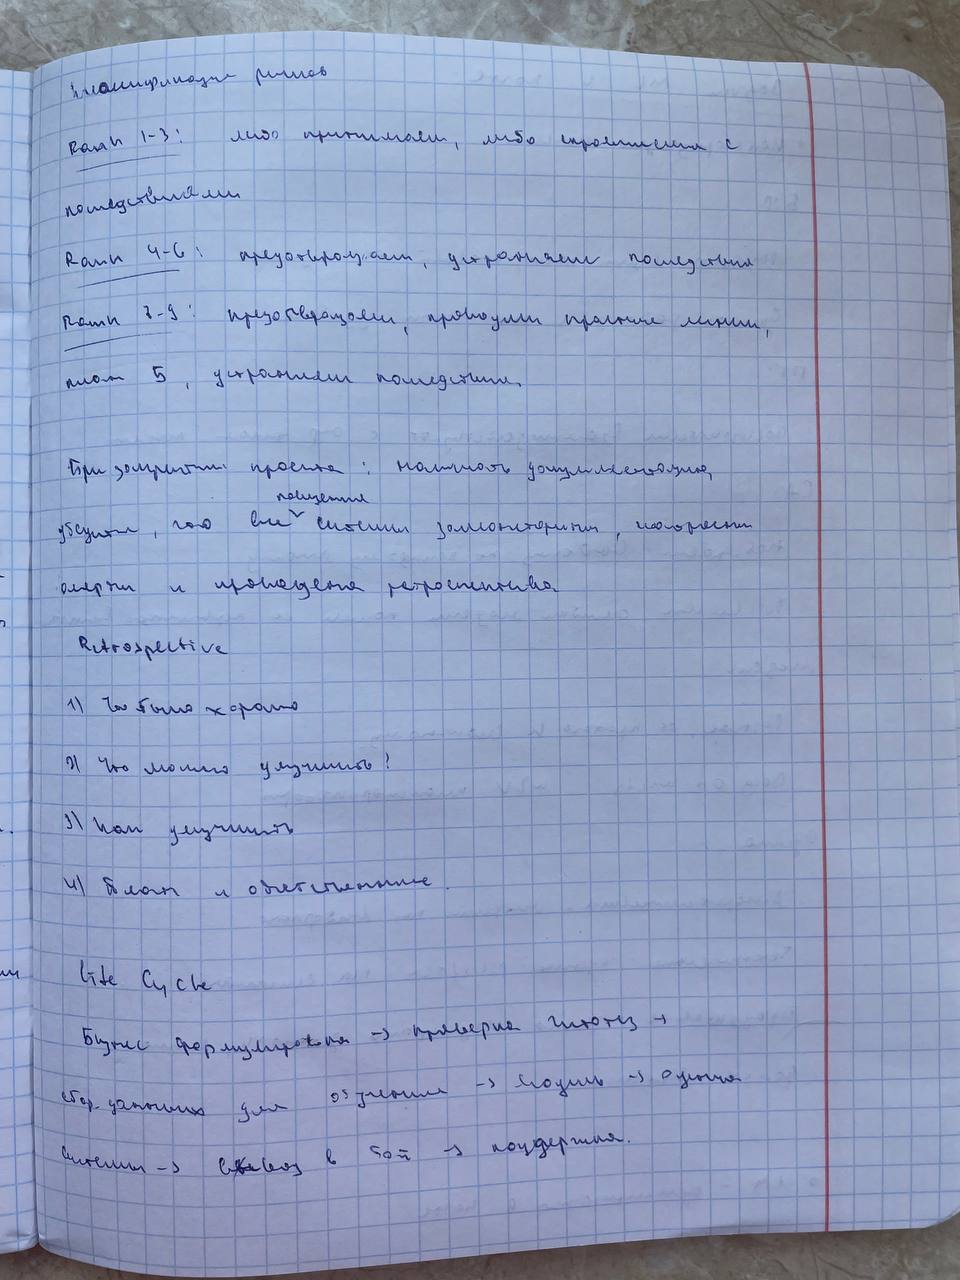 Классификация рисков
Rank 1-3: либо принимаем, либо справляемся с
последствиями
Rank 4-6: предотвращаем, устраняем последствия
Rank 7-9: предотвращаем, проводим линии,
план Б, устраняем последствия.
При закрытии проекта: написать документацию,
убедиться, что все системы замониторины, настроены
помещения
алерты и проведена ретроспектива.
Retrospective
1) Что было хорошо
2) Что можно улучшить?
3) Как улучшить
4) План и ответственные.
Life Cycle
Бизнес формулировка -> проверка гипотез ->
сбор данных для обучения -> модель -> оценка
системы -> вывоз в бой -> поддержка.